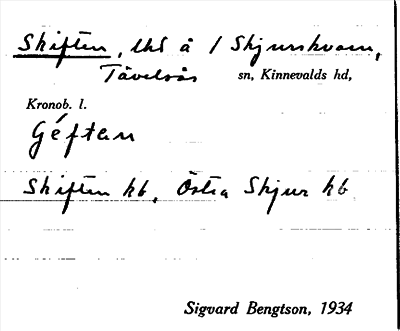 Skiften, lhs å 1 Skjurskvarn,
Tävelsås sn, Kinnevalds hd,
Kronob. l.
Géftan
Skiften kb, Östra Skjur kb
Sigvard Bengtson, 1934